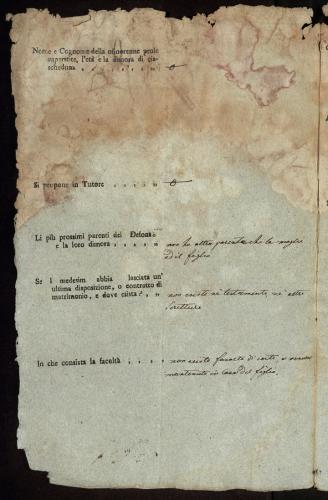 Nome e Cognome della minorenne prole
superstite, l'età e la dimora di cia-
scheduna . . . . . . . . o
Si propone in Tutore . . . . . o
Li più prossimi parenti del Defonto
e la loro dimora . . . . . non ha altra parentela che la moglie
ed il figlio
Se i medesimi abbia lasciata un'
ultima disposizione, o contratto di
matrimonio, e dove esista? . . non esiste nè testamento, nè altre
scritture
In che consista la facoltà . . . . non esiste facoltà di sorte,
mantenuto in casa del figlio.